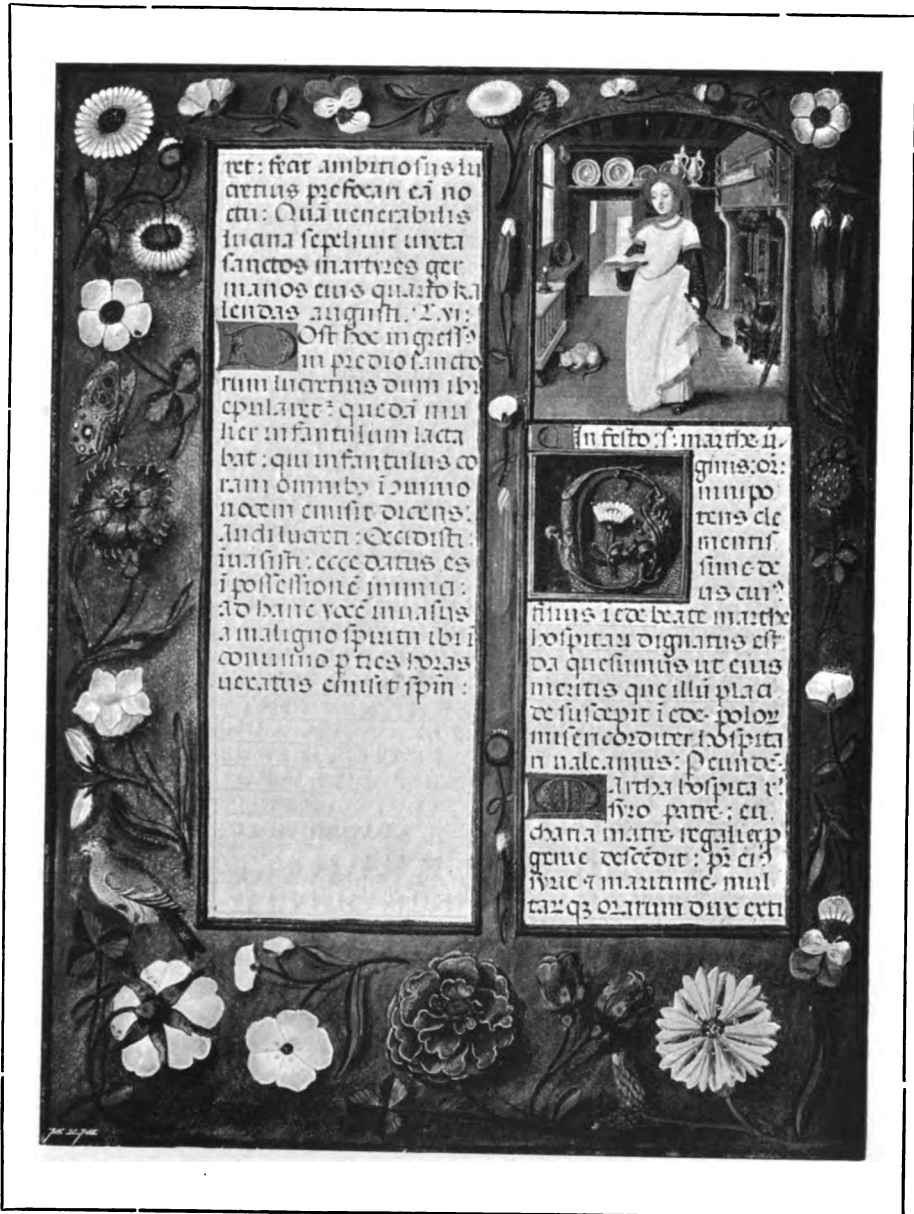 ret: fecit ambitiosus lu
cretius prefocari eā no
ctu: Quā uenerabilis
lucina sepeliuit iuxta
sanctos martyres ger
manos eius quarto ka
lendas augusti. L. vi:
Ost hoc ingressꝰ
in predio sancto
rum lucretius dum ibi
epularetᷣ queda mu
lier infantulum lacta
bat: qui infantulus co
ram omnibꝫ ī gremio
uocem emisit dicens:
Audi lucreti: Occidisti:
inuasisti: ecce datus es
ī possessionē inimici:
ad hanc vocē inuasus
a maligno spiritu ibi ī
conuiuio p tres horas
uexatus emisit spm̄:
In festo: s: marthe ũ-
ginis: or̄:
Omnipo
tens cle
mentis
sime de
us cuiꝰ
filius ī ede beate marthe
hospitari dignatus est
da quesumus ut eius
meritis que illū placi
de suscepit ī ede polor
misericorditer hospita
ri ualeamus: P eundē.
Martha hospita xͥ
syro patre: eu
charia matre regali ex p
genie descēdit: pr̄ eiꝰ
syrie ⁊ maritime mul
tarqꝫ orarum dux exti